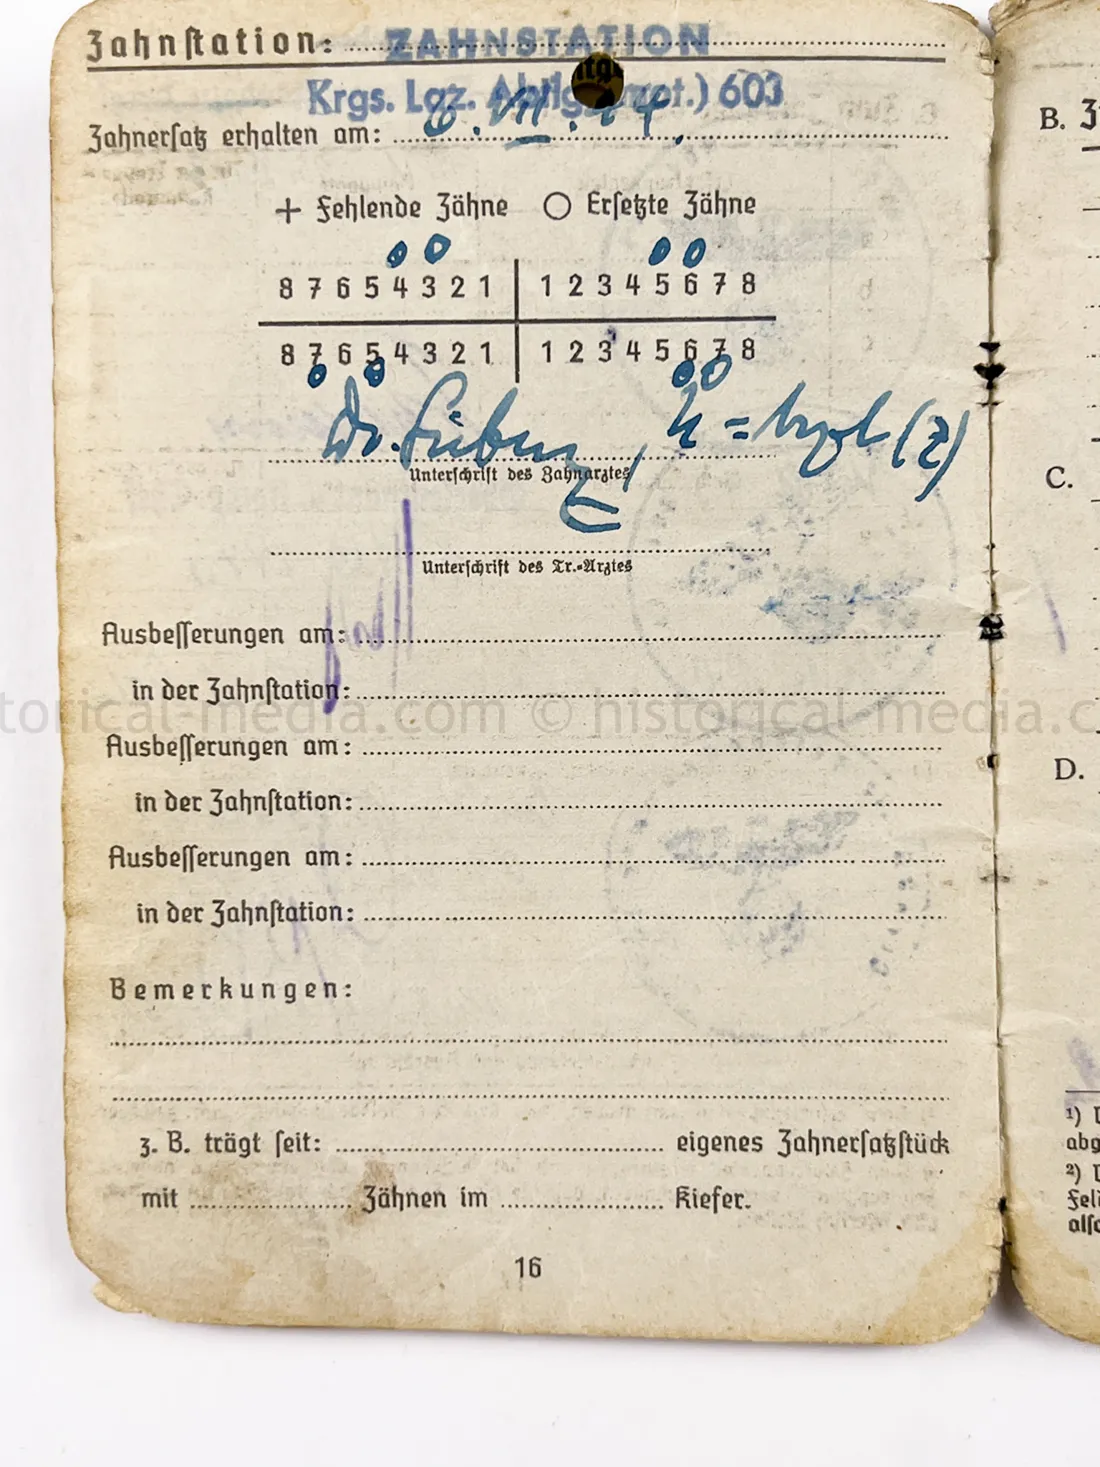 Zahnstation: ZAHNSTATION
Krgs. Laz. Abtlg. (mot.) 603
Zahnersatz erhalten am: 6. VII. 44.
+ Fehlende Zähne ○ Ersetzte Zähne
8 7 6 5 4 3 2 1 1 2 3 4 5 6 7 8
8 7 6 5 4 3 2 1 1 2 3 4 5 6 7 8
Dr. (Z)
Unterschrift des Zahnarztes
Unterschrift des Tr.-Arztes
Ausbesserungen am:
in der Zahnstation:
historical-media.com © historical-media.c
Ausbesserungen am:
in der Zahnstation:
Ausbesserungen am:
in der Zahnstation:
Bemerkungen:
z. B. trägt seit: eigenes Zahnersatzstück
mit Zähnen im Kiefer.
16
B.
C.
D.
¹)
abg
²)
Feld
also